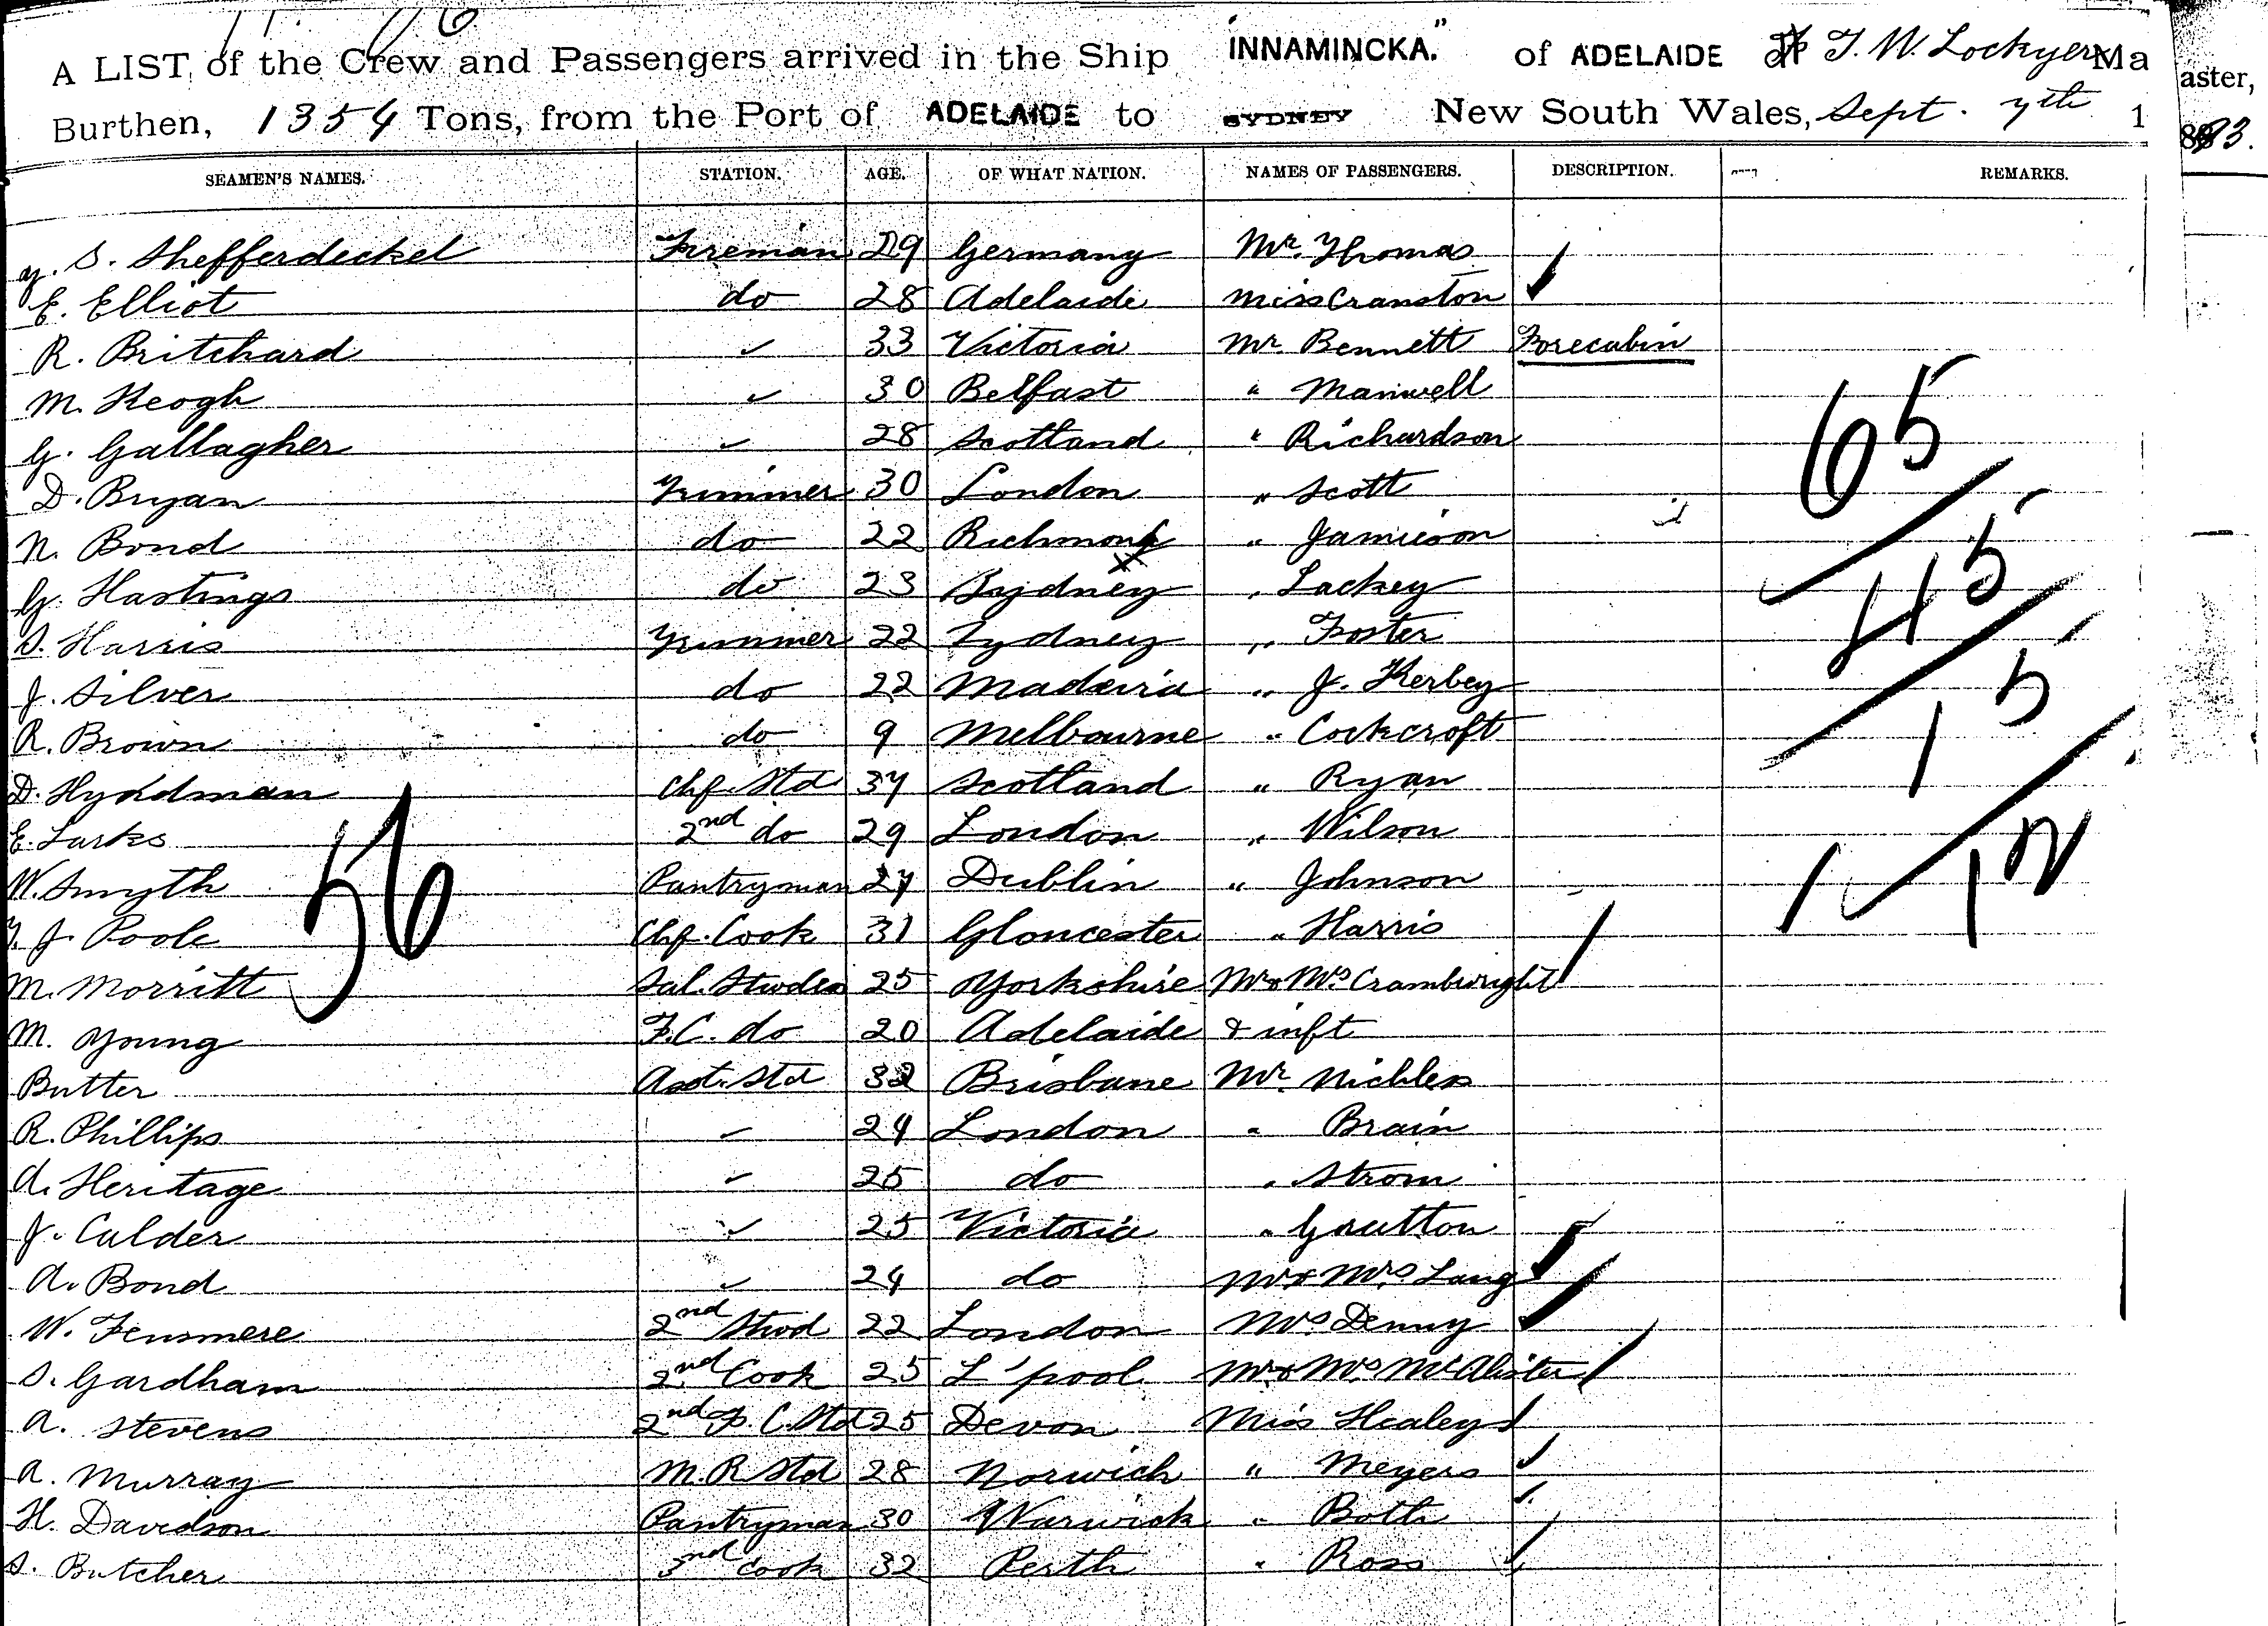 A LIST of the Crew and Passengers arrived in the Ship "INNAMINCKA." of ADELAIDE T. W. Lockyer Master,
Burthen, 1354 Tons, from the Port of ADELAIDE to SYDNEY New South Wales, Sept. 7th 1893.
SEAMEN'S NAMES. STATION. AGE. OF WHAT NATION. NAMES OF PASSENGERS. DESCRIPTION. REMARKS.
S. Shefferdeckel Fireman 29 Germany Mr. Thomas
E. Elliot do 28 Adelaide Miss Cranston
R. Britchard ✓ 33 Victoria Mr. Bennett Forecabin
M. Keogh ✓ 30 Belfast " Manwell
G. Gallagher ✓ 28 Scotland " Richardson
D. Bryan Trimmer 30 London " Scott
N. Bond do 22 Richmond " Jamieson
G. Hastings do 23 Sydney " Lackey
S. Harris Trimmer 22 Sydney " Foster
J. Silver do 22 Madeira " J. Kerbey
R. Brown do 9 Melbourne " Cockcroft
D. Hyndman Chf. Std 37 Scotland " Ryan
E. Larks 2nd do 29 London " Wilson
W. Smyth Pantryman 27 Dublin " Johnson
J. Poole Chf. Cook 31 Gloncester " Harris
M. Morritt Sal. Stwdes 25 Yorkshire Mr & Mrs Crambwright
M. Young F.C. do 20 Adelaide & inft
Butter Asst. Std 32 Brisbane Mr. Nichles
R. Phillips ✓ 24 London " Brain
A. Heritage ✓ 25 do " Strom
J. Calder ✓ 25 Victoria " Grutton
A. Bond ✓ 24 do Mr & Mrs Lang
W. Fensmere 2nd Stwd 22 London Mrs Denny
S. Gardham 2nd Cook 25 L'pool Mr & Mrs McAlister
A. Stevens 2nd F. C. Std 25 Devon Miss Healey
A. Murray M. R Std 28 Norwich " Meyers
H. Davidson Pantryman 30 Warwick " Both
S. Butcher 3rd Cook 32 Perth " Ross
56
65
45
15
1 12